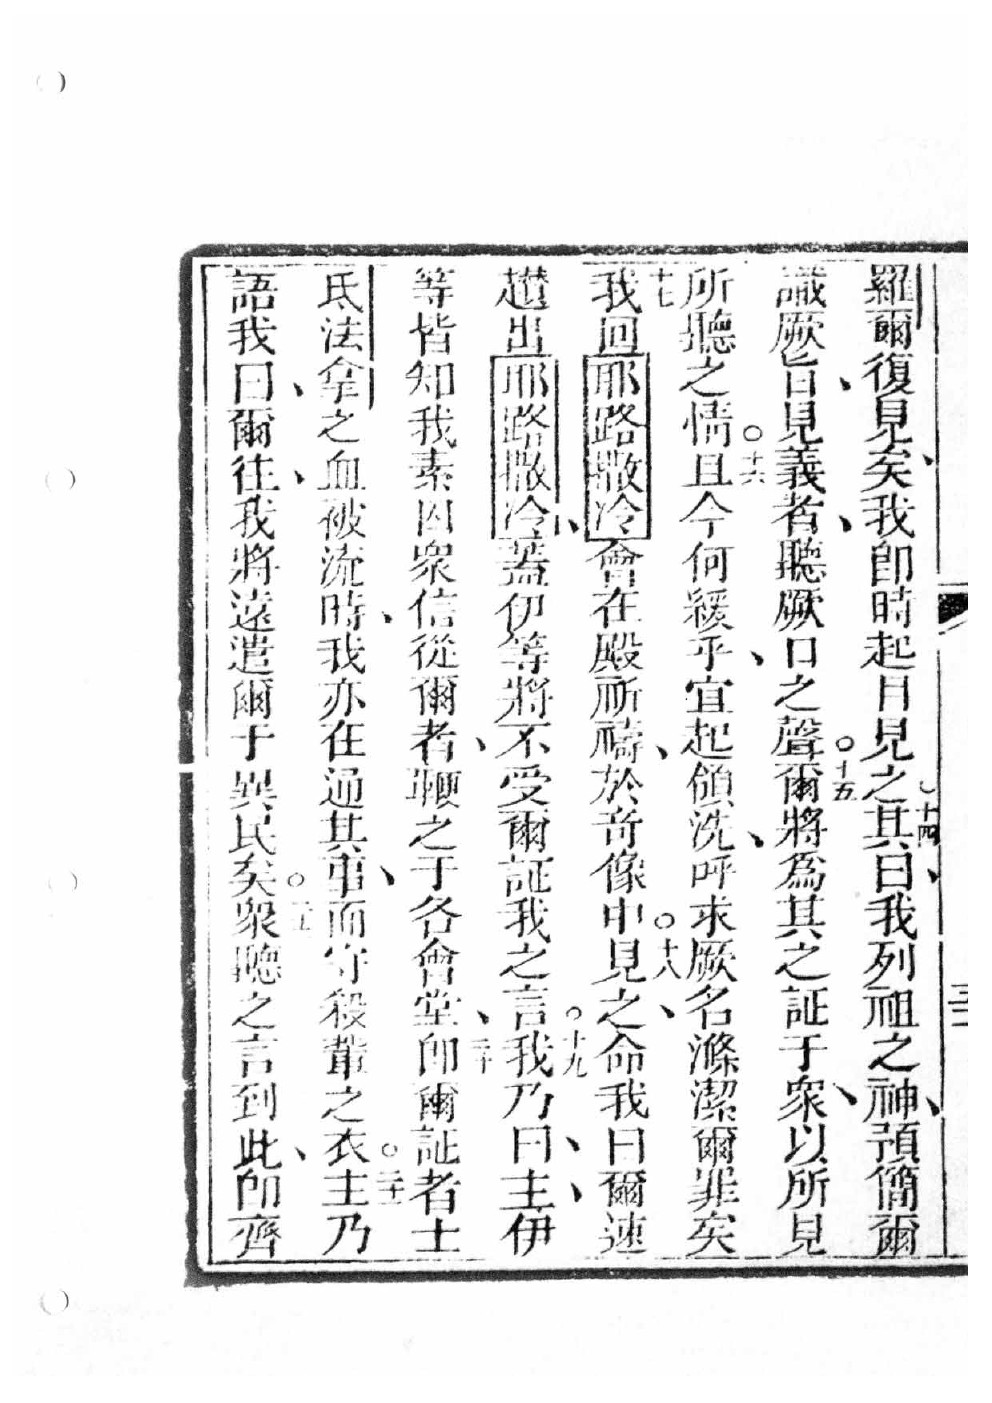 羅爾復見矣、我卽時起目見之○十四其曰、我列祖之神、預簡爾
識厥旨、見義者、聽厥口之聲○十五爾將爲其之証于衆、以所見
所聽之情○十六且今何緩乎、宜起領洗、呼求厥名滌潔爾罪矣
十七我回耶路撒冷會在殿祈禱、於奇像中見之○十八命我曰、爾速
趲出耶路撒冷、蓋伊等將不受爾証我之言○十九我乃曰、主、伊
等皆知我素囚衆信從爾者、鞭之于各會堂、二十卽爾証者士
氐法拿之血被流時、我亦在通其事、而守殺輩之衣○二十一主乃
語我曰、爾往、我將遠遣爾于異民矣○二十二衆聽之言到此、卽齊
三二